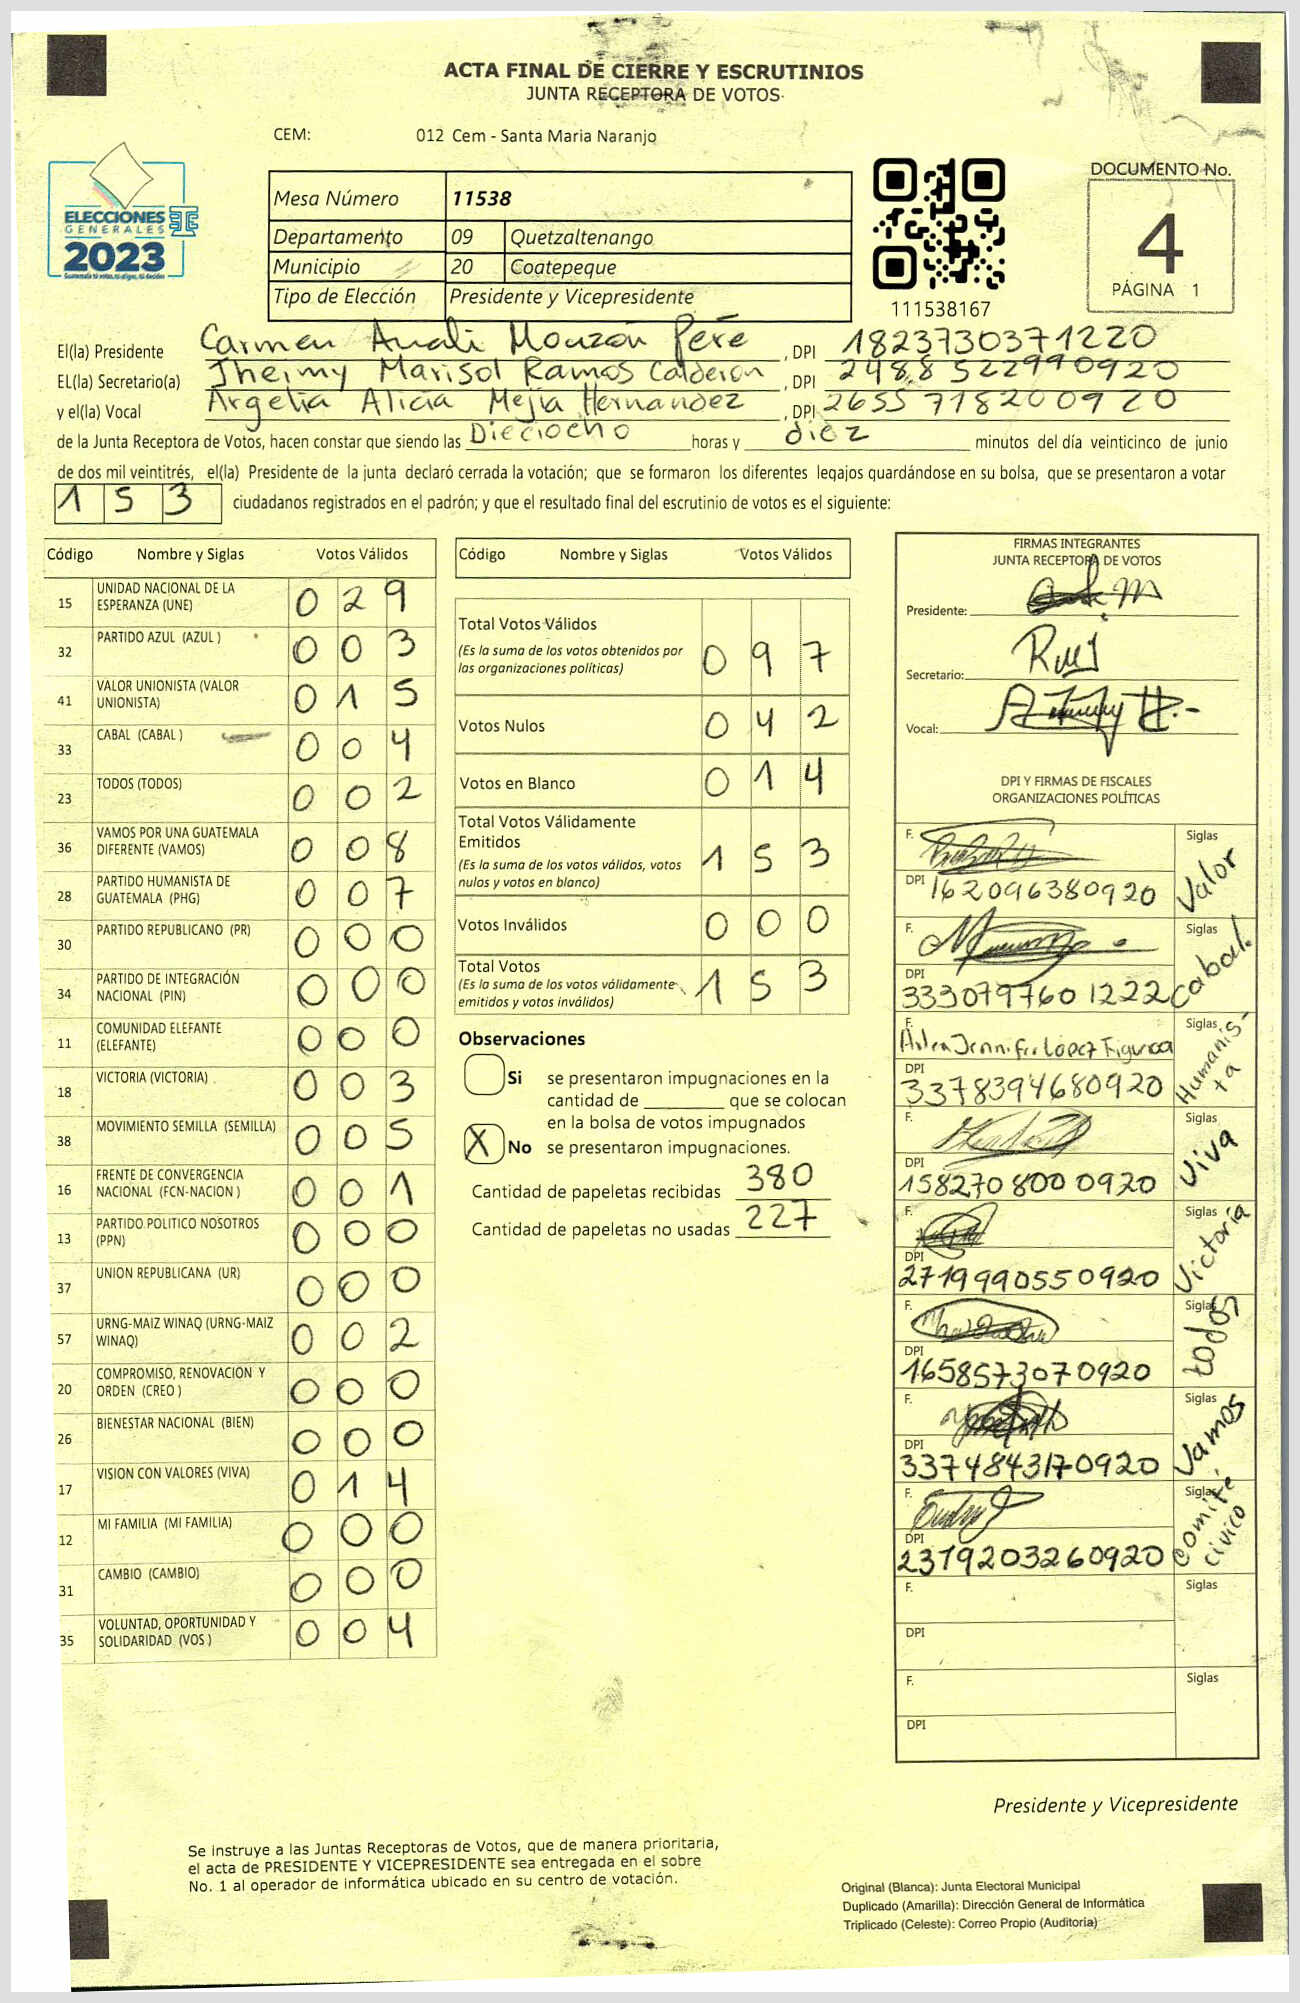 ACTA FINAL DE CIERRE Y ESCRUTINIOS
JUNTA RECEPTORA DE VOTOS
CEM: 012 Cem - Santa Maria Naranjo
ELECCIONES
GENERALES
2023
Mesa Número 11538
Departamento 09 Quetzaltenango
Municipio 20 Coatepeque
Tipo de Elección Presidente y Vicepresidente
111538167
DOCUMENTO No.
4
PÁGINA 1
El(la) Presidente Carmen Anali Monzón Peré , DPI 1823730371220
EL(la) Secretario(a) Jheimy Marisol Ramos Calderón , DPI 2488522990920
y el(la) Vocal Argelia Alicia Mejía Hernandez , DPI 2655718200920
de la Junta Receptora de Votos, hacen constar que siendo las Dieciocho horas y diez minutos del día veinticinco de junio
de dos mil veintitrés, el(la) Presidente de la junta declaró cerrada la votación; que se formaron los diferentes legajos guardándose en su bolsa, que se presentaron a votar
153 ciudadanos registrados en el padrón; y que el resultado final del escrutinio de votos es el siguiente:
Código Nombre y Siglas Votos Válidos
15 UNIDAD NACIONAL DE LA ESPERANZA (UNE) 029
32 PARTIDO AZUL (AZUL ) 003
41 VALOR UNIONISTA (VALOR UNIONISTA) 015
33 CABAL (CABAL ) 004
23 TODOS (TODOS) 002
36 VAMOS POR UNA GUATEMALA DIFERENTE (VAMOS) 008
28 PARTIDO HUMANISTA DE GUATEMALA (PHG) 007
30 PARTIDO REPUBLICANO (PR) 000
34 PARTIDO DE INTEGRACIÓN NACIONAL (PIN) 000
11 COMUNIDAD ELEFANTE (ELEFANTE) 000
18 VICTORIA (VICTORIA) 003
38 MOVIMIENTO SEMILLA (SEMILLA) 005
16 FRENTE DE CONVERGENCIA NACIONAL (FCN-NACION ) 001
13 PARTIDO POLITICO NOSOTROS (PPN) 000
37 UNION REPUBLICANA (UR) 000
57 URNG-MAIZ WINAQ (URNG-MAIZ WINAQ) 002
20 COMPROMISO, RENOVACION Y ORDEN (CREO ) 000
26 BIENESTAR NACIONAL (BIEN) 000
17 VISION CON VALORES (VIVA) 014
12 MI FAMILIA (MI FAMILIA) 000
31 CAMBIO (CAMBIO) 000
35 VOLUNTAD, OPORTUNIDAD Y SOLIDARIDAD (VOS ) 004
Código Nombre y Siglas Votos Válidos
Total Votos Válidos 097
(Es la suma de los votos obtenidos por
las organizaciones políticas)
Votos Nulos 042
Votos en Blanco 014
Total Votos Válidamente
Emitidos 153
(Es la suma de los votos válidos, votos
nulos y votos en blanco)
Votos Inválidos 000
Total Votos 153
(Es la suma de los votos válidamente
emitidos y votos inválidos)
Observaciones
Si se presentaron impugnaciones en la
cantidad de ________ que se colocan
en la bolsa de votos impugnados
X No se presentaron impugnaciones.
Cantidad de papeletas recibidas 380
Cantidad de papeletas no usadas 227
FIRMAS INTEGRANTES
JUNTA RECEPTORA DE VOTOS
Presidente:
Secretario:
Vocal:
DPI Y FIRMAS DE FISCALES
ORGANIZACIONES POLÍTICAS
F. Siglas Valor
DPI 162096380920
F. Siglas Cabal.
DPI 3330797601222
F. Jennifer López Figueroa Siglas Humanis-
ta
DPI 3378394680920
F. Siglas Viva
DPI 1582708000920
F. Siglas Victoria
DPI 2719990550920
F. Siglas todos
DPI 1658573070920
F. Siglas Vamos
DPI 3374843170920
F. Siglas comité
civico
DPI 2379203260920
F. Siglas
DPI
F. Siglas
DPI
Presidente y Vicepresidente
Se instruye a las Juntas Receptoras de Votos, que de manera prioritaria,
el acta de PRESIDENTE Y VICEPRESIDENTE sea entregada en el sobre
No. 1 al operador de informática ubicado en su centro de votación.
Original (Blanca): Junta Electoral Municipal
Duplicado (Amarilla): Dirección General de Informática
Triplicado (Celeste): Correo Propio (Auditoria)